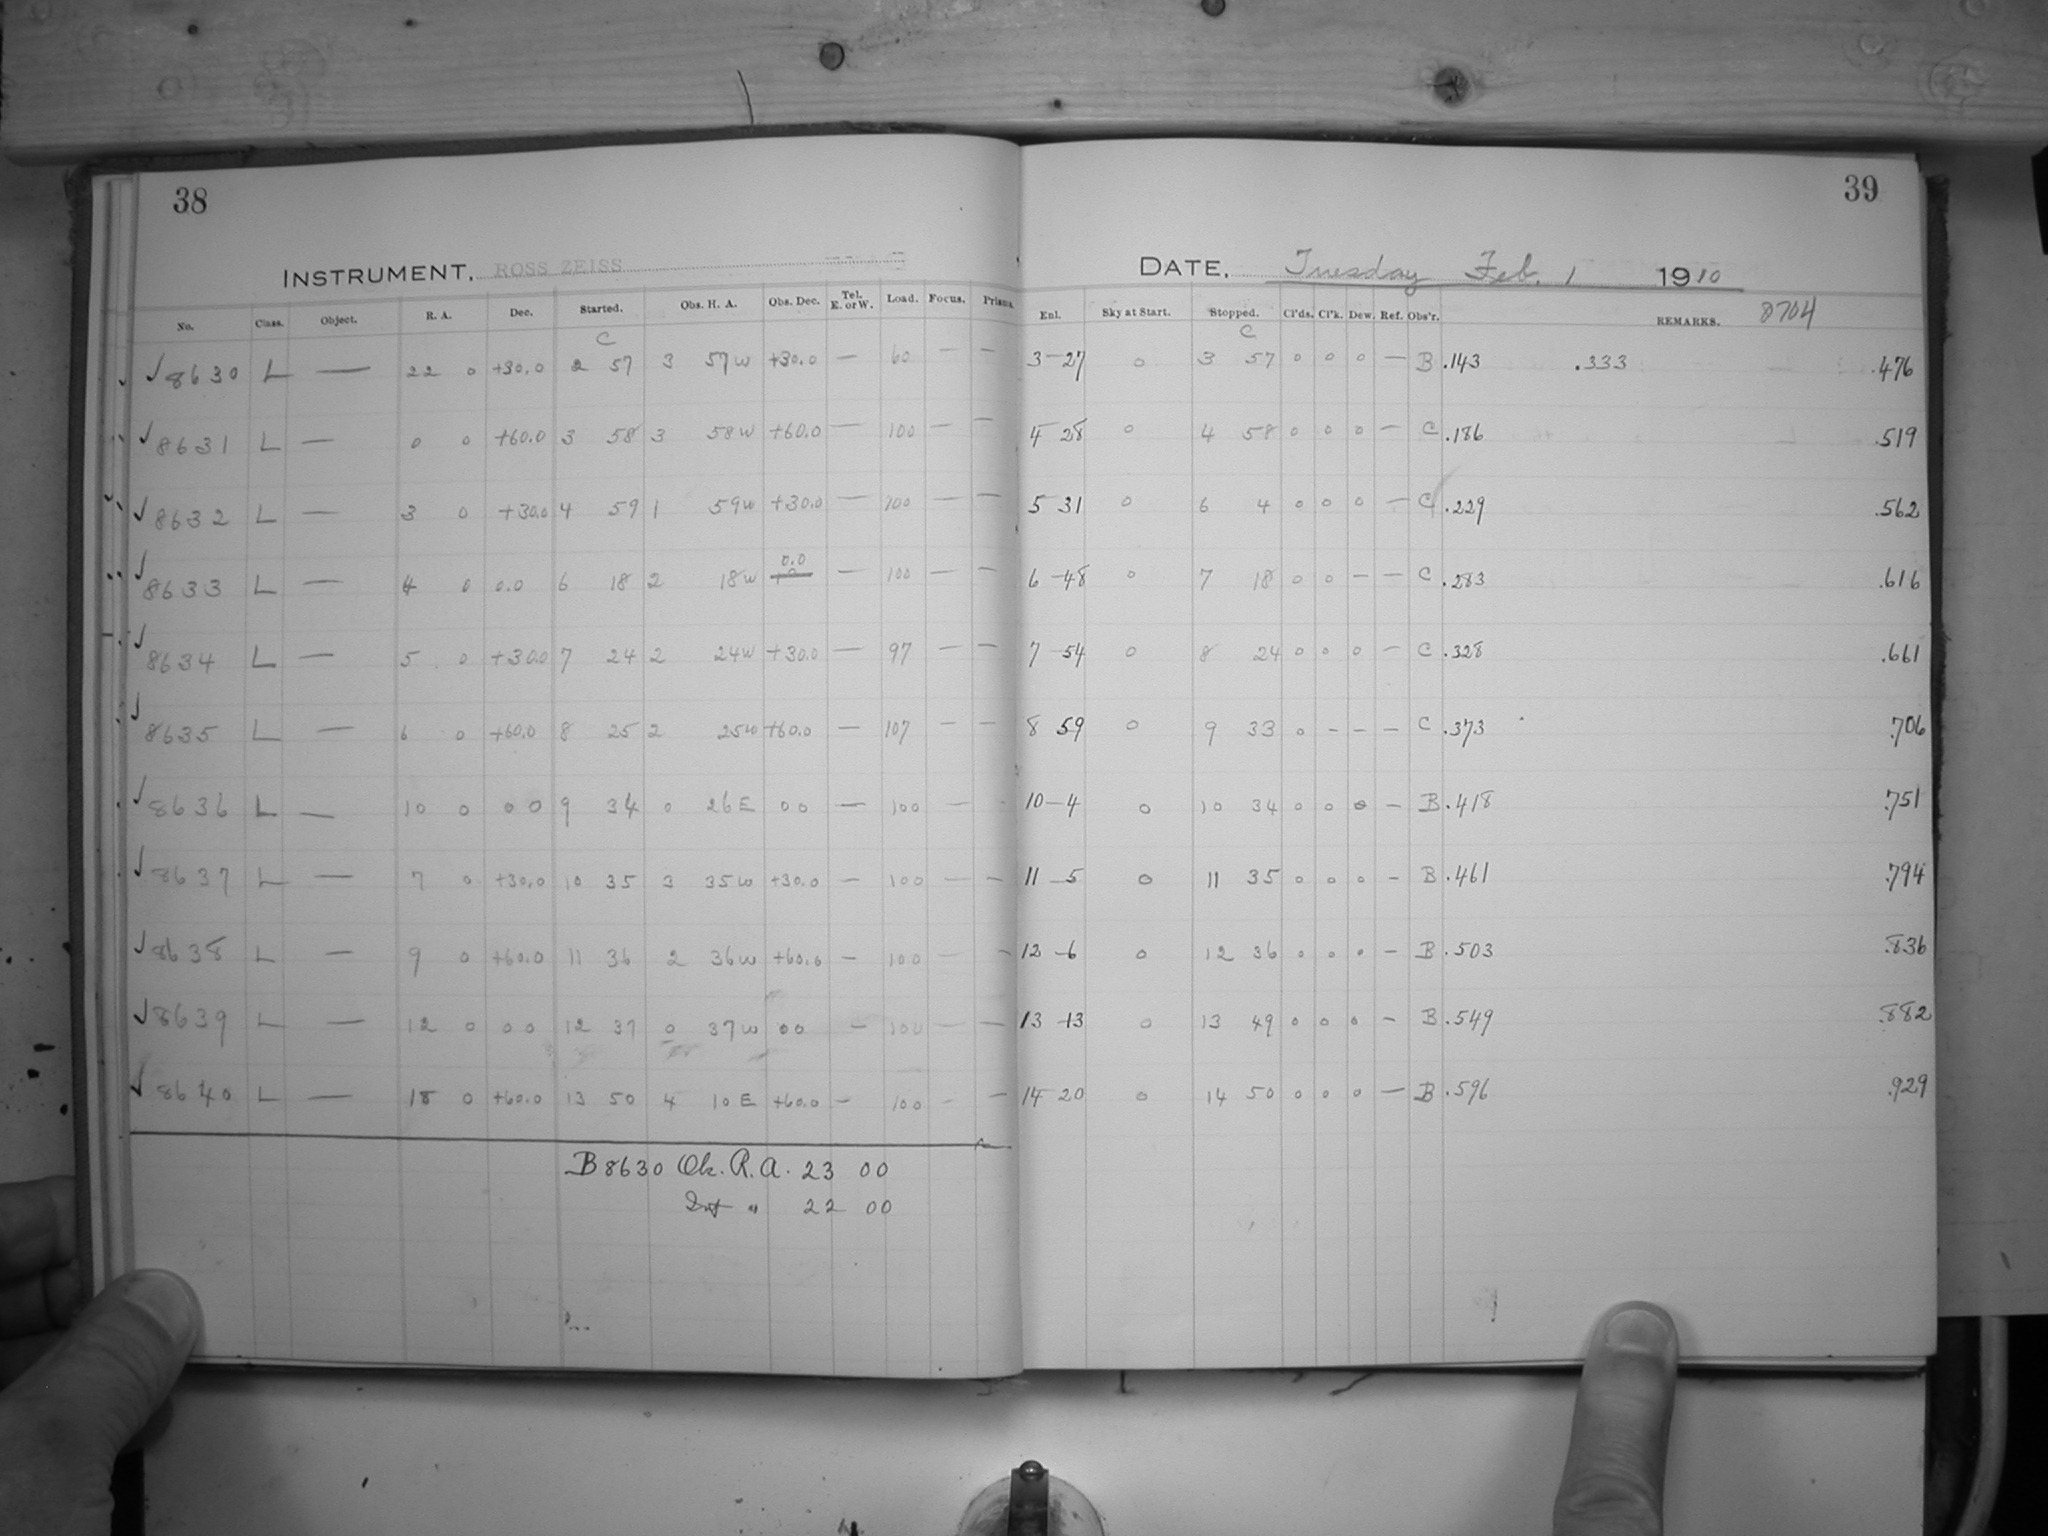 38
INSTRUMENT. ROSS ZEISS
No. Class. Object. R. A. Dec. Started. Obs. H. A. Obs. Dec. Tel. E. or W. Load. Focus. Prisms
C
✓ 8630 L — 22 0 +30.0 2 57 3 57 W +30.0 — 60 — —
✓ 8631 L — 0 0 +60.0 3 58 3 58 W +60.0 — 100 — —
✓ 8632 L — 3 0 +30.0 4 59 1 59 W +30.0 — 100 — —
✓ 8633 L — 4 0 0.0 6 18 2 18 W 0.0 — 100 — —
✓ 8634 L — 5 0 +30.0 7 24 2 24 W +30.0 — 97 — —
✓ 8635 L — 6 0 +60.0 8 25 2 25 W +60.0 — 107 — —
✓ 8636 L — 10 0 0 0 9 34 0 26 E 0 0 — 100 — -
✓ 8637 L — 7 0 +30.0 10 35 3 35 W +30.0 — 100 — —
✓ 8638 L — 9 0 +60.0 11 36 2 36 W +60.0 — 100 — —
✓ 8639 L — 12 0 0 0 12 37 0 37 W 0 0 — 100 — —
✓ 8640 L — 18 0 +60.0 13 50 4 10 E +60.0 — 100 - —
B 8630 Ok. R. A. 23 00
" 22 00
39
DATE. Tuesday Feb. 1 1910
Enl. Sky at Start. Stopped. Cl'ds. Cl'k. Dew. Ref. Obs'r. REMARKS. 8704
C
3-27 0 3 57 0 0 0 — B .143 .333 .476
4 28 0 4 58 0 0 0 — C .186 .519
5 31 0 6 4 0 0 0 — C .229 .562
6-48 0 7 18 0 0 — — C .283 .616
7-54 0 8 24 0 0 0 — C .328 .661
8 59 0 9 33 0 - - - C .373 .706
10-4 0 10 34 0 0 0 — B .418 .751
11-5 0 11 35 0 0 0 - B .461 .794
12-6 0 12 36 0 0 0 - B .503 .836
13-13 0 13 49 0 0 0 - B .549 .882
14 20 0 14 50 0 0 0 — B .596 .929